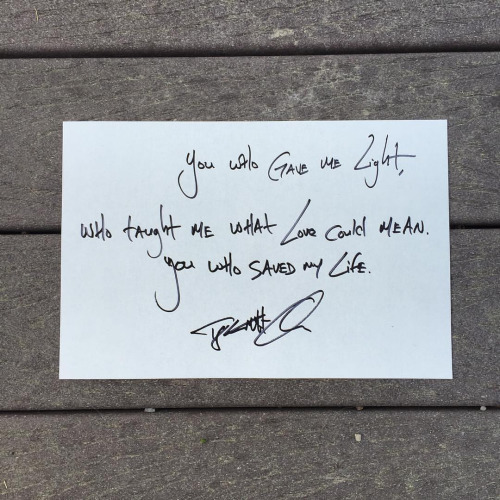 You who Gave me Light,
who taught me what Love could mean.
You who saved my Life.